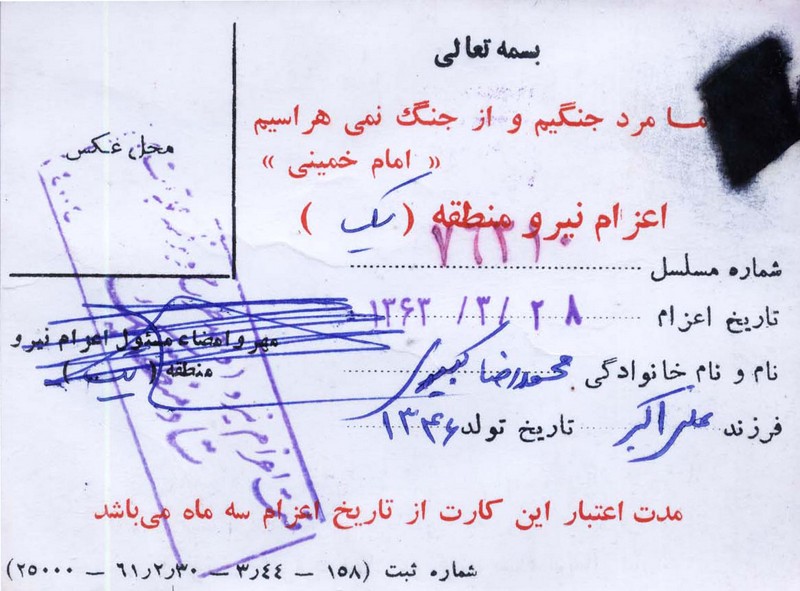 بسمه تعالی
ما مرد جنگیم و از جنگ نمی هراسیم
« امام خمینی »
محل عکس
اعزام نیرو منطقه ( یک )
شماره مسلسل ۷۶۳۱۰
تاریخ اعزام ۲۸ /۳/ ۱۳۶۳
مهر و امضاء مسئول اعزام نیرو
منطقه ( یک )
نام و نام خانوادگی محمدرضا کبیری
فرزند علی اکبر تاریخ تولد ۱۳۴۶
مدت اعتبار این کارت از تاریخ اعزام سه ماه می‌باشد
شماره ثبت (۱۵۸ – ۳٫۴۴ – ۶۱٫۲٫۳۰ – ۲۵۰۰۰)